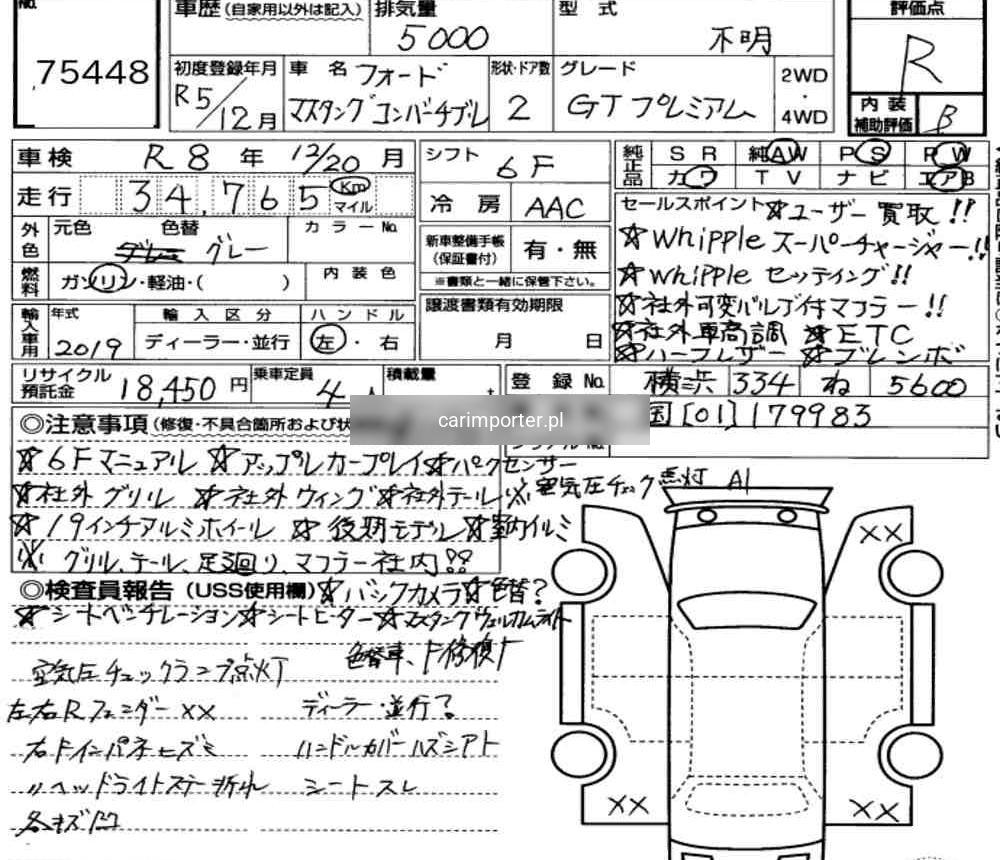 No.
75448
車歴 (自家用以外は記入)
排気量 5000
型式 不明
評価点 R
内装補助評価 B
初度登録年月 R5/12月
車名 フォード マスタング コンバーチブル
形状・ドア数 2
グレード GT プレミアム
2WD・4WD
車検 R8年 12/20月
シフト 6F
純正品 SR 純AW PS PW
カワ TV ナビ エアB
走行 34,765 Km マイル
冷房 AAC
外色 元色 色替 グレー カラーNo.
新車整備手帳(保証書付) 有・無
※書類と一緒に保管下さい。
燃料 ガソリン・軽油・( ) 内装色
譲渡書類有効期限 月 日
輸入車用 年式 2019 輸入区分 ディーラー・並行 ハンドル 左・右
セールスポイント ☆ユーザー買取!!
☆Whipple スーパーチャージャー!!
☆Whipple セッティング!!
☆社外可変バルブ付マフラー!!
☆社外車高調 ☆ETC
☆ハーフレザー ☆ブレンボ
リサイクル預託金 18,450円 乗車定員 4人 積載量 t
登録No. 横浜 334 ね 5600
国[01]179983
carimporter.pl
◎注意事項(修復・不具合箇所および状
☆6Fマニュアル ☆アップルカープレイ ☆パークセンサー
☆社外グリル ☆社外ウィング ☆社外テール ※空気圧チェック点灯 A1
☆19インチアルミホイール ☆後期モデル ☆室内イルミ
※グリル、テール、足廻り、マフラー社内!!
◎検査員報告 (USS使用欄) ☆バックカメラ ☆色替?
☆シートベンチレーション ☆シートヒーター ☆マスタングウェルカムライト
空気圧チェックランプ点灯 色替車、下修復下
左右Rフェンダーxx ディーラー・並行?
右Fインパネヒズミ ハンドルカバーハズシアト
〃ヘッドライトステー折れ シートスレ
各キズ凹
XX
XX
XX